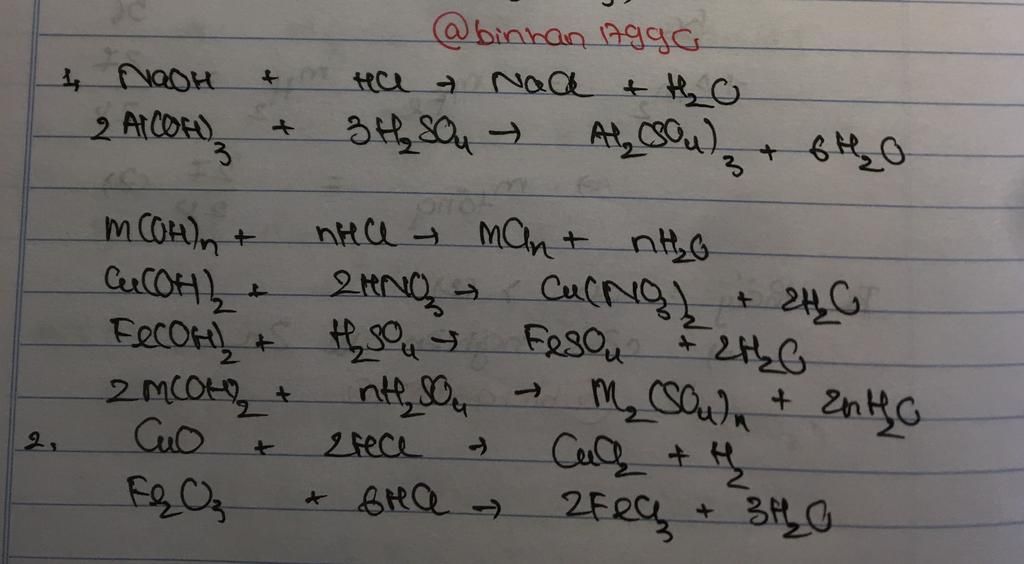 @binhan1799G
1, NaOH + HCl → NaCl + H₂O
2Al(OH)₃ + 3H₂SO₄ → Al₂(SO₄)₃ + 6H₂O
M(OH)n + nHCl → MCln + nH₂O
Cu(OH)₂ + 2HNO₃ → Cu(NO₃)₂ + 2H₂O
Fe(OH)₂ + H₂SO₄ → FeSO₄ + 2H₂O
2M(OH)₂ + nH₂SO₄ → M₂(SO₄)n + 2nH₂O
2, CuO + 2HCl → CuCl₂ + H₂
Fe₂O₃ + 6HCl → 2FeCl₃ + 3H₂O